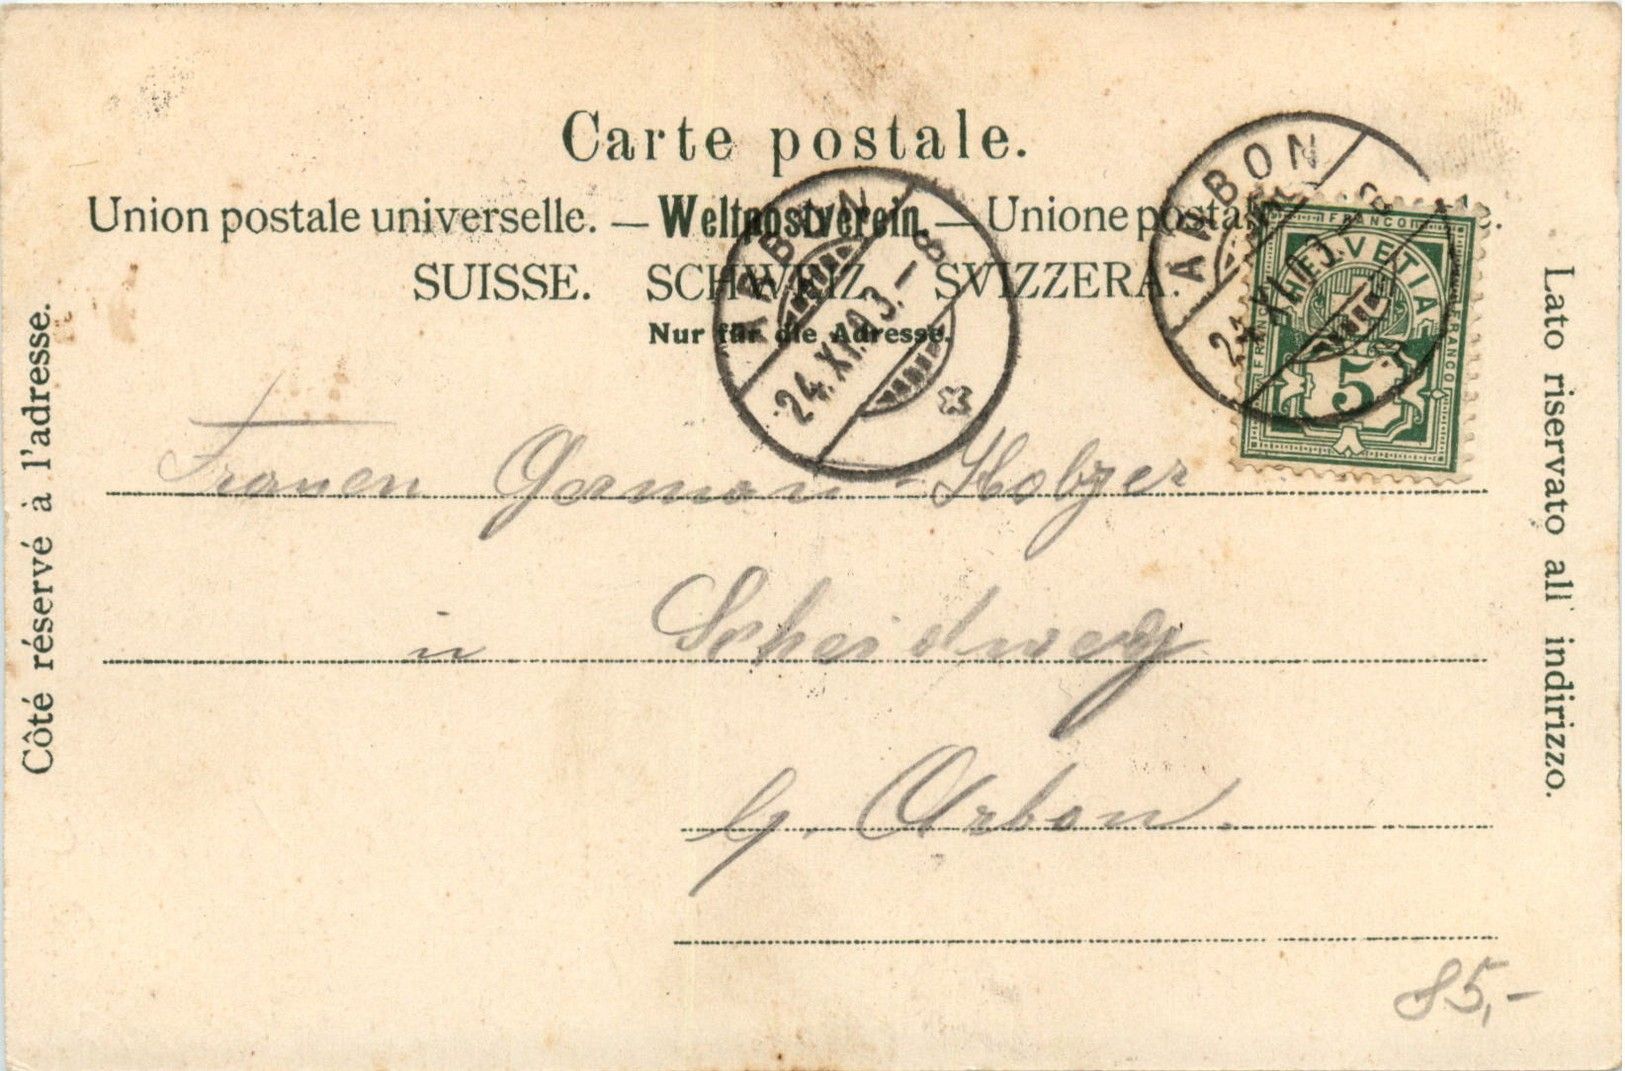 Carte postale.
Union postale universelle. — Weltpostverein. — Unione posta
SUISSE. SCHWEIZ. SVIZZERA.
Nur für die Adresse.
Côté réservé à l'adresse.
Lato riservato all' indirizzo.
ARBON
24.XI.03.–8
ARBON
24.XI.03.–8
FRANCO
FRANCO
FRANCO
HELVETIA
5
German-Holzer
in Scheidweg
b/. Arbon.
85,-